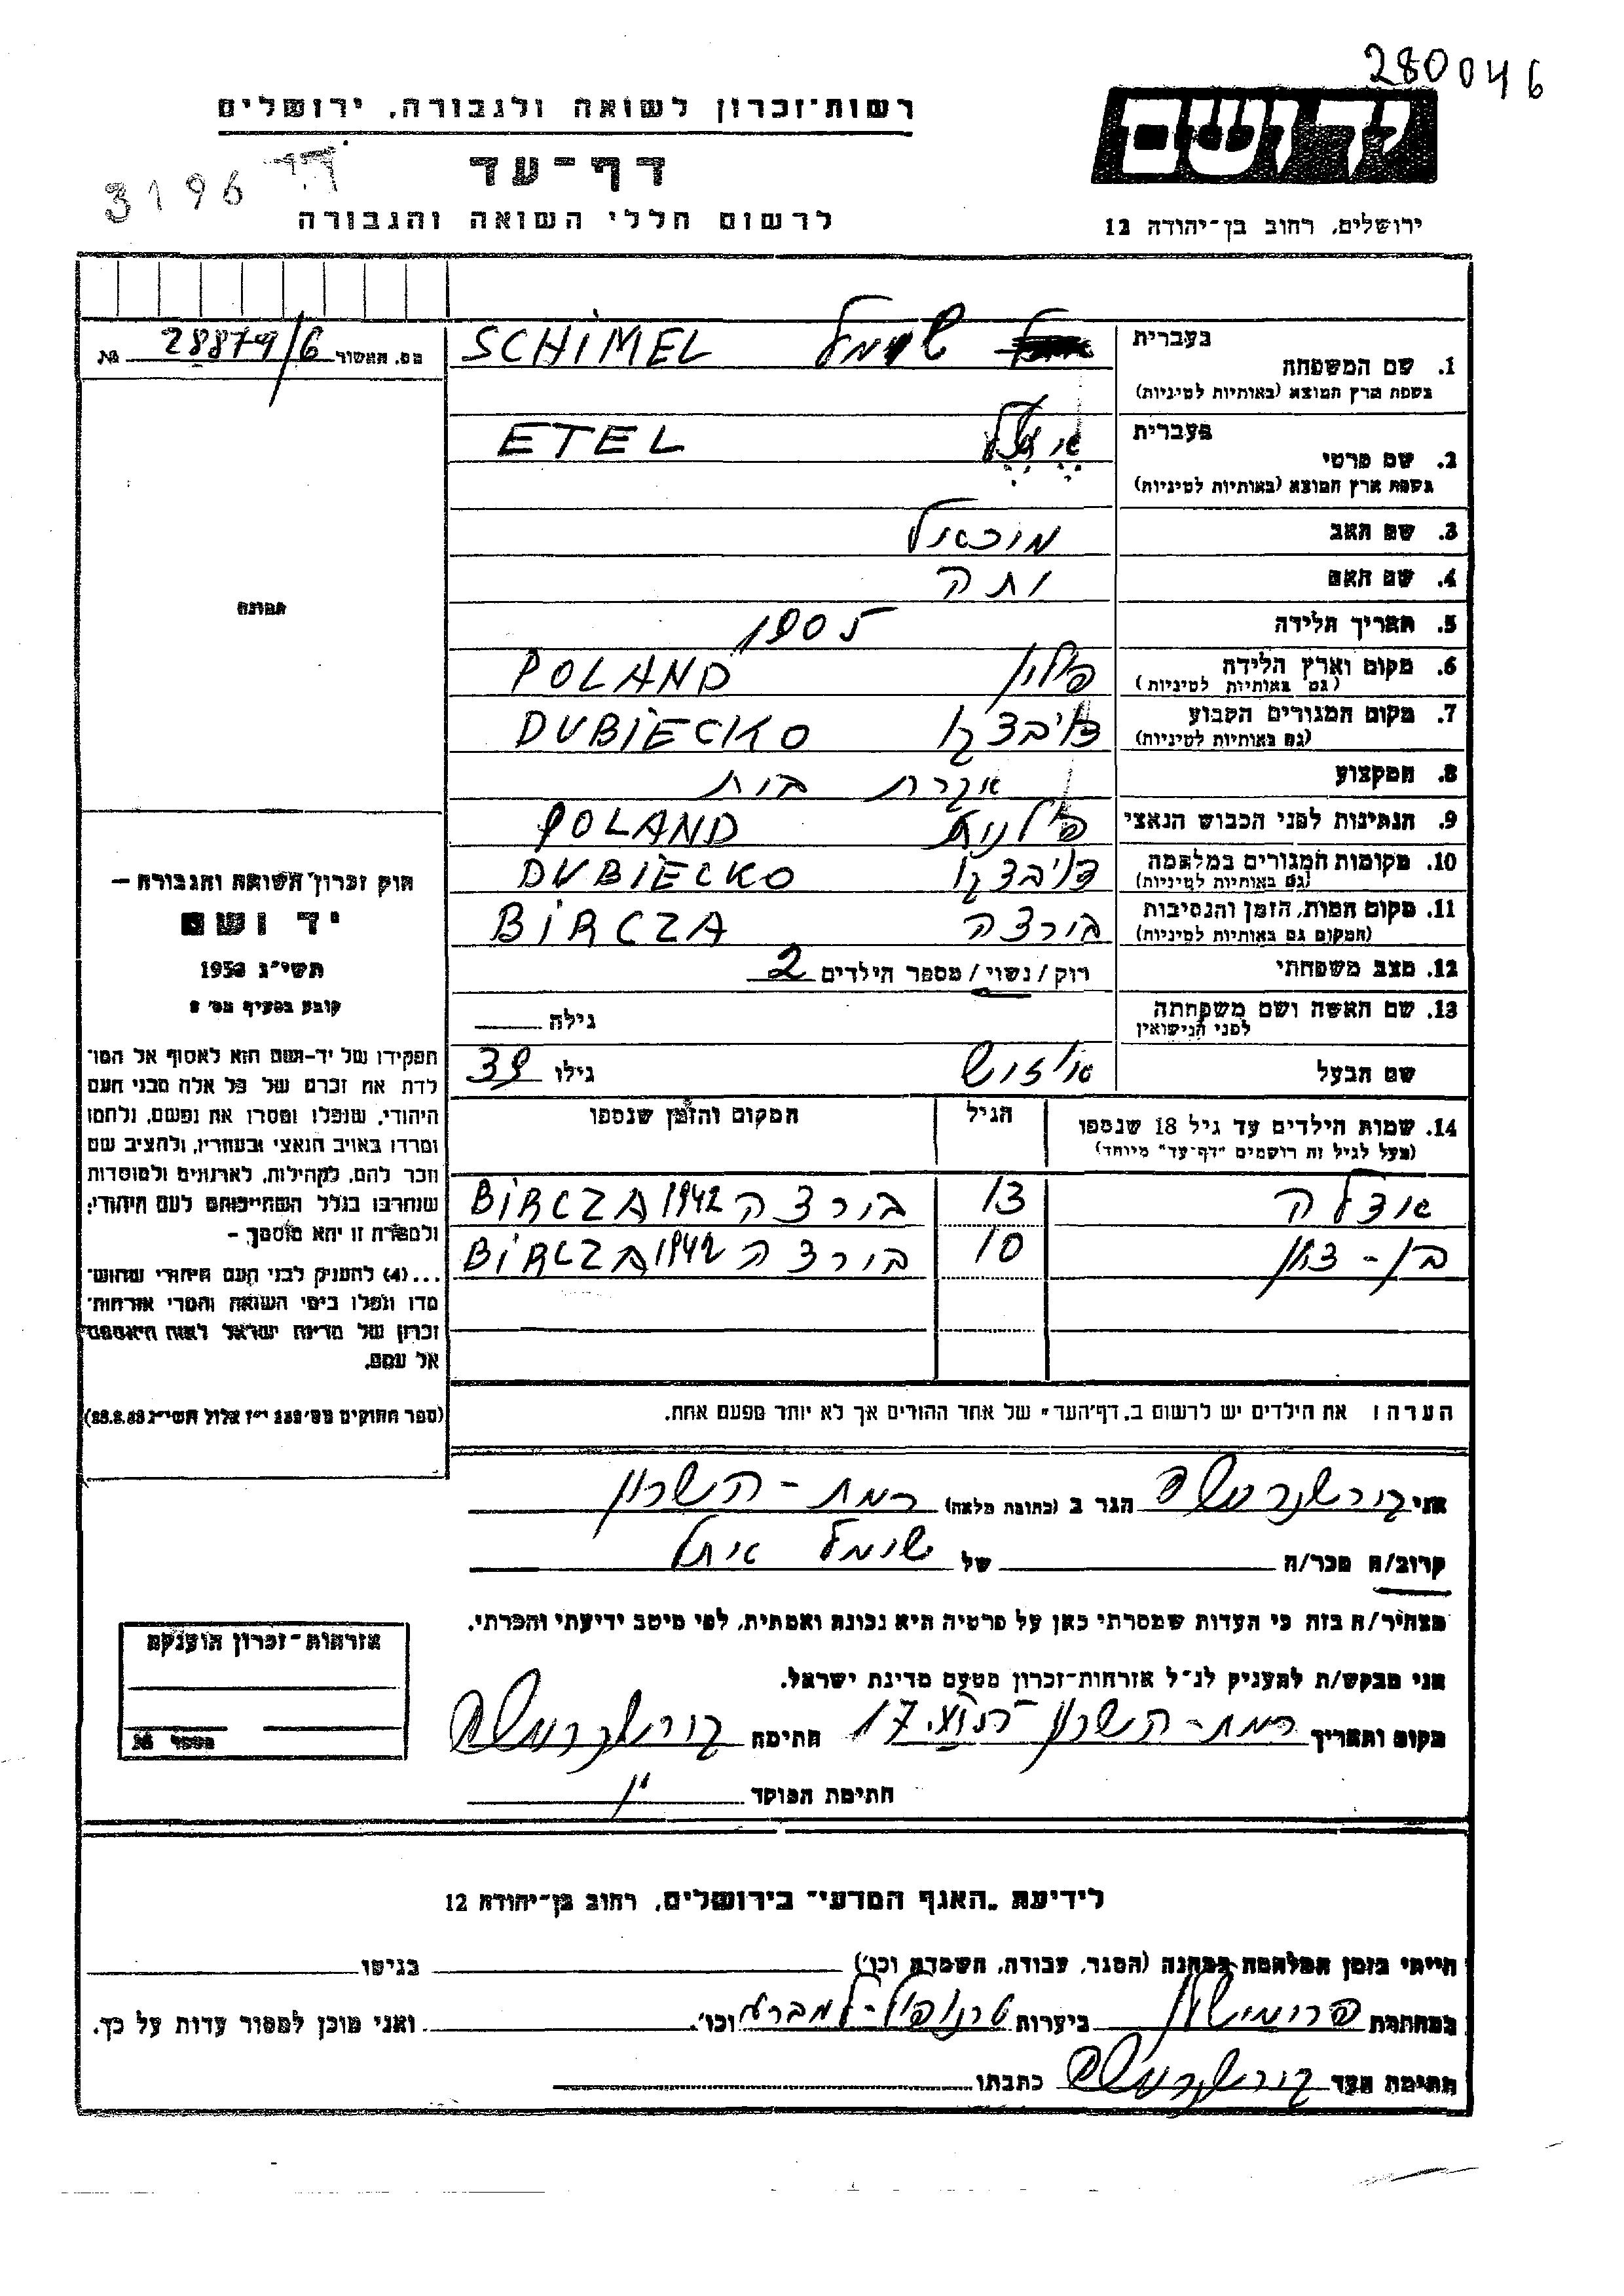 280046
רשות־זכרון לשואה ולגבורה, ירושלים
יד ושם
דף־עד
3196
לרשום חללי השואה והגבורה
ירושלים, רחוב בן־יהודה 12
מס. האשור 28879/6 №
בעברית
1. שם המשפחה
שימל SCHIMEL
בשפת ארץ המוצא (באותיות לטיניות)
בעברית
2. שם פרטי
ETEL
בשפת ארץ המוצא (באותיות לטיניות)
3. שם האב מיכאל
4. שם האם
5. תאריך הלידה 1905
6. מקום וארץ הלידה פולין POLAND
(גם באותיות לטיניות)
7. מקום המגורים הקבוע דיבצקו DUBIECKO
(גם באותיות לטיניות)
8. המקצוע עקרת בית
9. הנתינות לפני הכבוש הנאצי פולנית POLAND
10. מקומות המגורים במלחמה דיבצקו DUBIECKO
(גם באותיות לטיניות)
11. מקום המות, הזמן והנסיבות בירצה BIRCZA
(המקום גם באותיות לטיניות)
12. מצב משפחתי רוק/נשוי/ מספר הילדים 2
13. שם האשה ושם משפחתה
לפני הנישואין
גילה
שם הבעל גילו 39
14. שמות הילדים עד גיל 18 שנספו הגיל המקום והזמן שנספו
(מעל לגיל זה רושמים "דף־עד" מיוחד)
13 בירצה 1942 BIRCZA
בן-ציון 10 בירצה 1942 BIRCZA
הערה: את הילדים יש לרשום ב„דף־העד" של אחד ההורים אך לא יותר מפעם אחת.
תמונה
חוק זכרון השואה והגבורה –
יד ושם
תשי"ג 1953
קובע בסעיף מס׳ 2
תפקידו של יד-ושם הוא לאסוף אל המו־
לדת את זכרם של כל אלה מבני העם
היהודי, שנפלו ומסרו את נפשם, נלחמו
ומרדו באויב הנאצי ובעוזריו, ולהציב שם
וזכר להם, לקהילות, לארגונים ולמוסדות
שנחרבו בגלל השתייכותם לעם היהודי;
ולמטרה זו יהא מוסמך –
...(4) להעניק לבני העם היהודי שהוש־
מדו ונפלו בימי השואה והמרי אזרחות־
זכרון של מדינת ישראל לאות היאספם
אל עמם.
(ספר החוקים מס׳ 132 י״ז אלול תשי״ג 28.8.53)
אני הגר ב (כתובת מלאה) רמת - השרון
קרוב/ה מכר/ה של שימל איתל
מצהיר/ה בזה כי העדות שמסרתי כאן על פרטיה היא נכונה ואמתית, לפי מיטב ידיעתי והכרתי.
אני מבקש/ת להעניק לנ״ל אזרחות־זכרון מטעם מדינת ישראל.
מקום ותאריך רמת - השרון חתימה
חתימת הפוקד
אזרחות־זכרון הוענקה
מספר №
לידיעת „האגף המדעי" בירושלים, רחוב בן־יהודה 12
הייתי בזמן המלחמה במחנה (הסגר, עבודה, השמדה וכו׳) בגיטו
במחתרת ביערות וכו׳. ואני מוכן למסור עדות על כך.
חתימת העד כתבתו